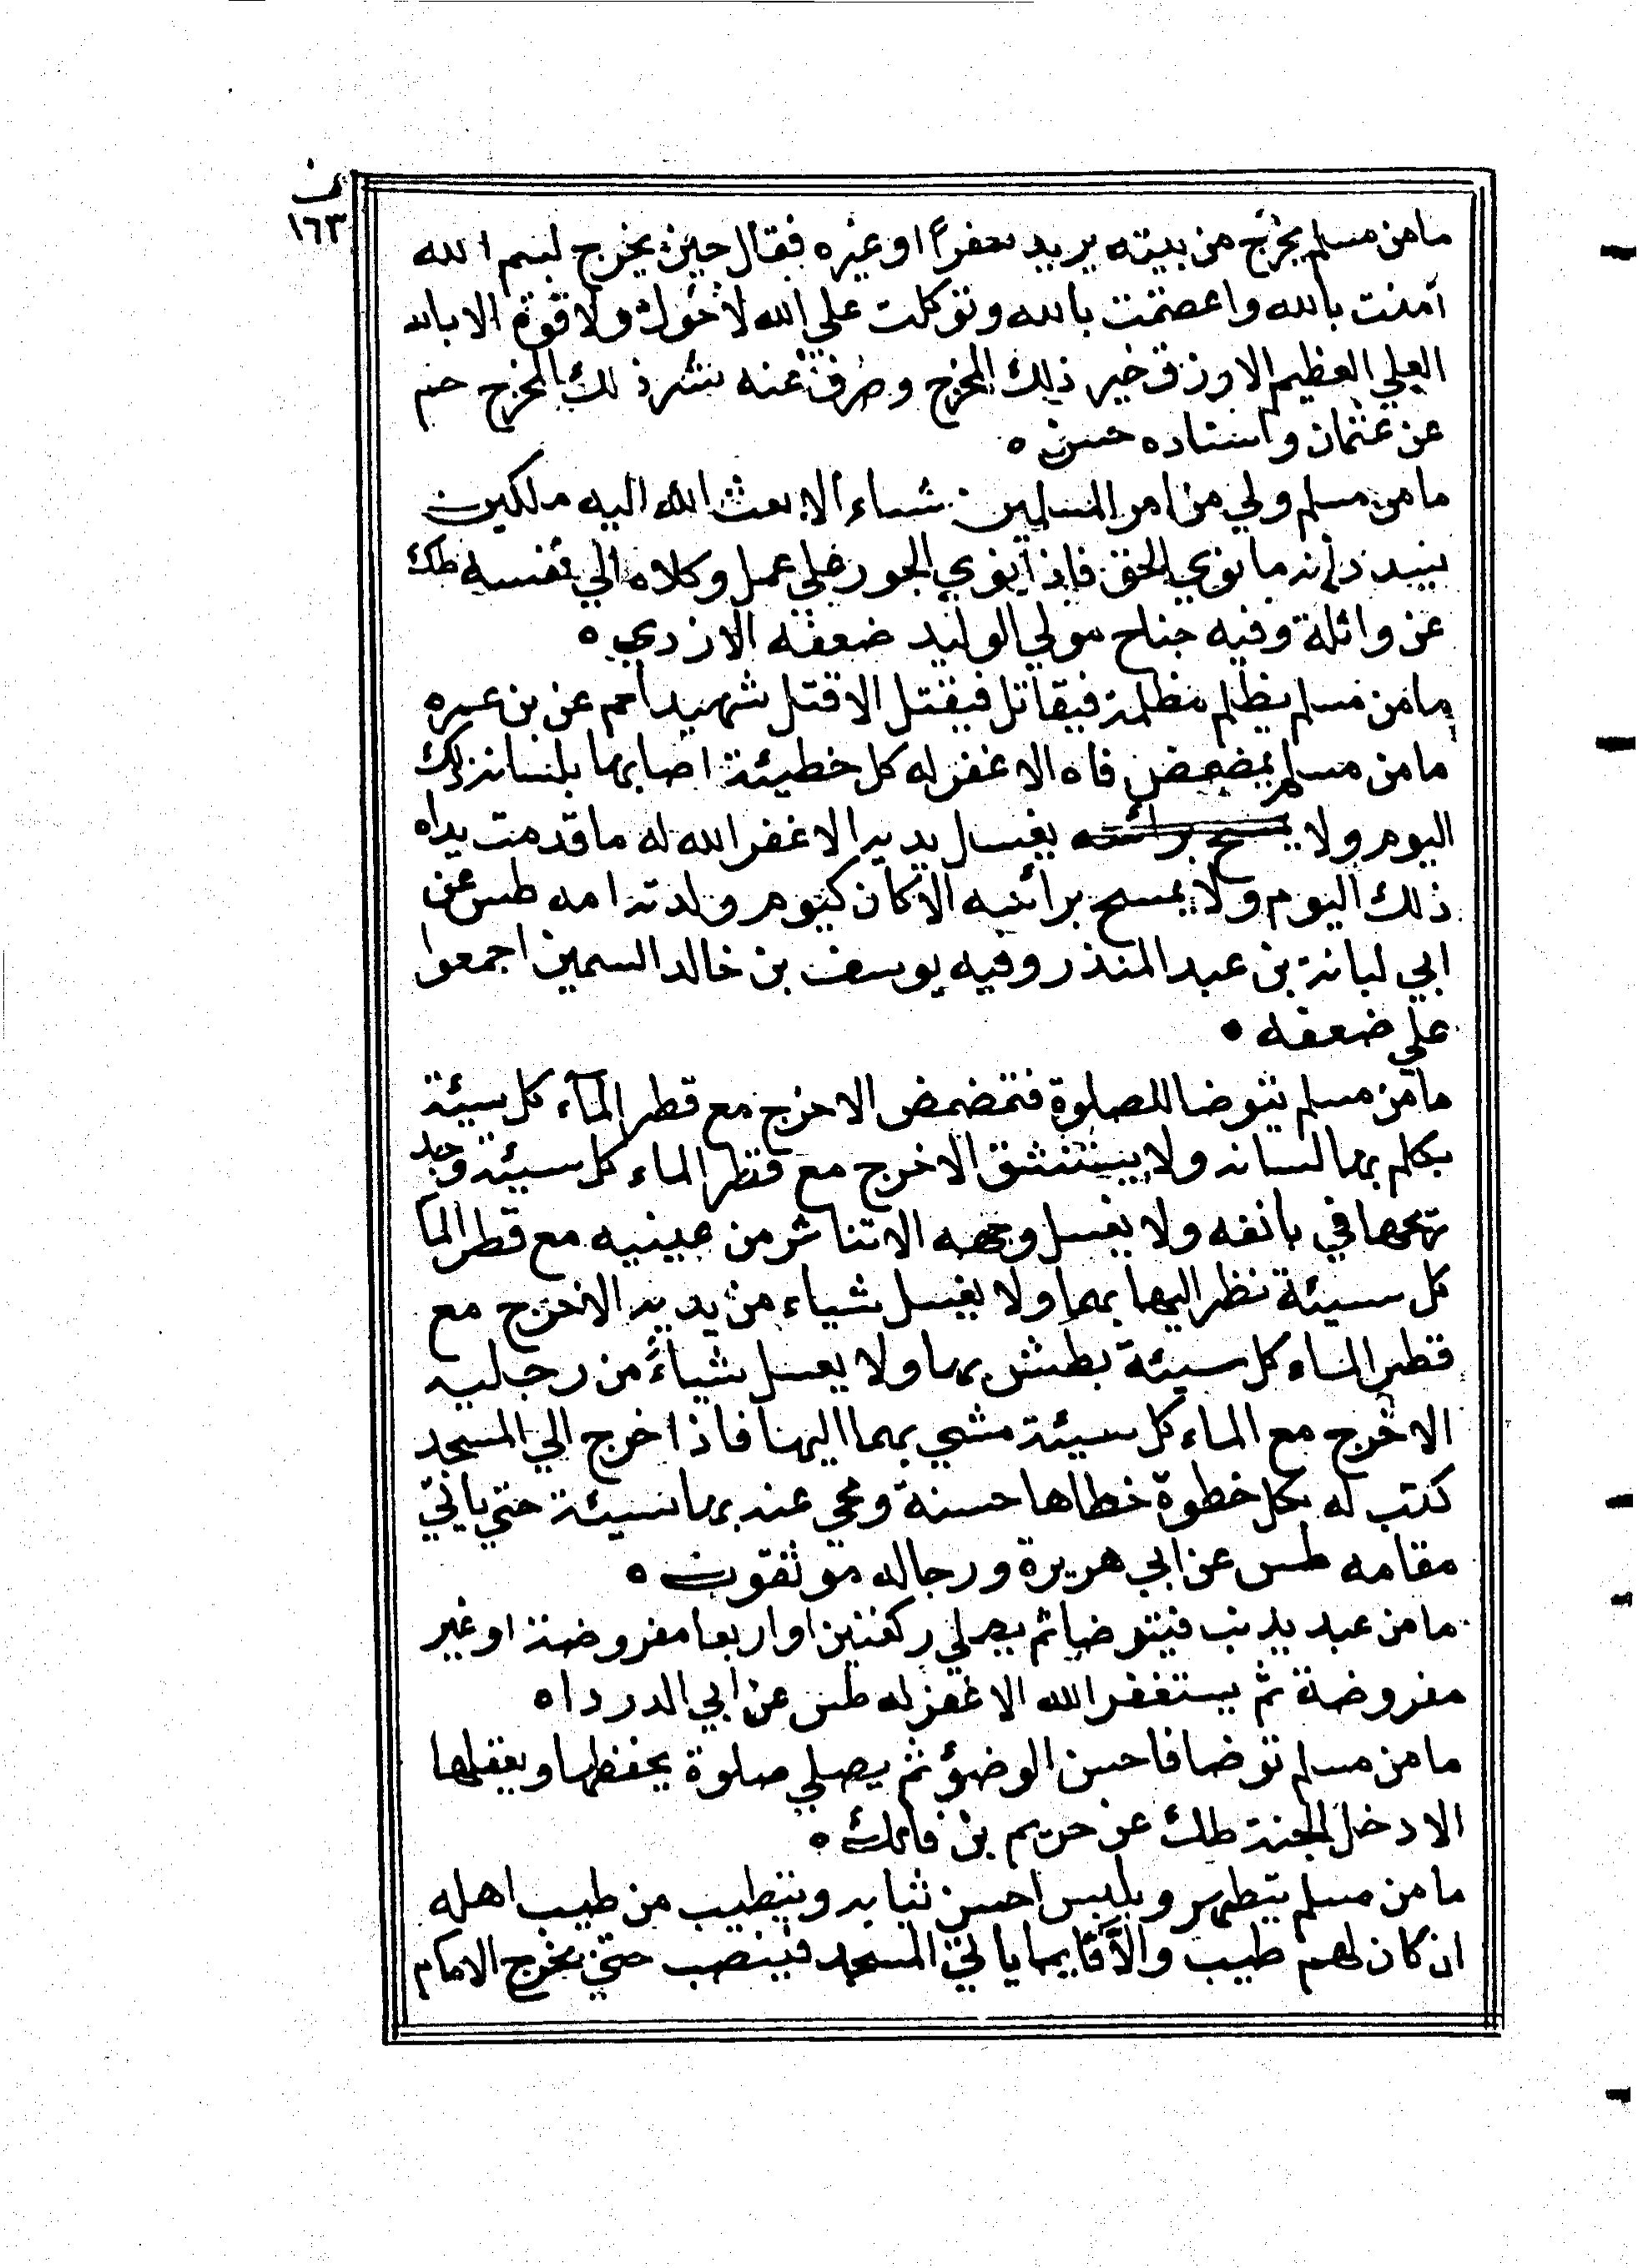 ف
١٦٣
مامن مسلم يخرج من بيته يريد سفرًا او غيره فقال حين يخرج بسم الله
آمنت بالله واعصتمت بالله وتوكلت علي الله لا حول ولا قوة الا بالله
العلي العظيم الا رزق خير ذلك المخرج وصرف عنه شر ذلك المخرج حم
عن عثمان واسناده حسن ه
مامن مسلم ولي من امر المسلمين شياء الا بعث الله اليه ملكين
يسددانه ما نوي الحق فاذا نوي الجور علي عمل وكلاه الي نفسه طك
عن واثلة وفيه جناح مولي الوليد ضعفه الازدي ه
مامن مسلم يظلم مظلمة فيقاتل فيقتل الا قتل شهيدا حم عن بن عمره
مامن مسلم يمضمض فاه الا غفر له كل خطيئة اصابها بلسانه ذلك
اليوم ولا يغسل يديه الا غفر الله له ما قدمت يداه
ذلك اليوم ولا يمسح برائسه الا كان كيوم ولدته امه طس عن
ابي لبانة بن عبد المنذر وفيه يوسف بن خالد السمين اجمعوا
علي ضعفه ه
مامن مسلم يتوضا للصلوة فتمضمض الا خرج مع قطر المآء كل سيئة
بكلم بها لسانه ولا يستنشق الا خرج مع قطر الماء كل سيئة وجد
ريحها في بانفه ولا يغسل وجهه الا تناثر من عينيه مع قطر الما
كل سيئة نظر اليها بهما ولا يغسل شياء من يديه الا خرج مع
قطر الماء كل سيئة بطش بها ولا يغسل شياءً من رجليه
الا خرج مع الماء كل سيئة مشي بهما اليها فاذا خرج الي المسجد
كتب له بكل خطوة خطاها حسنة ومحي عنه بها سيئة حتي ياتي
مقامه طس عن ابي هريرة ورجاله موثقون ه
مامن عبد يذنب فيتوضا ثم يصلي ركعتين او اربعا مفروضة او غير
مفروضة ثم يستغفر الله الا غفر له طس عن ابي الدرداه
مامن مسلم توضا فاحسن الوضؤ ثم يصلي صلوة يحفظها ويعقلها
الا دخل الجنة طك عن خريم بن فاتك ه
مامن مسلم يتطهر ويلبس احسن ثيابه ويتطيب من طيب اهله
ان كان لهم طيب والا فا ياتي المسجد فينصب حتي يخرج الامام